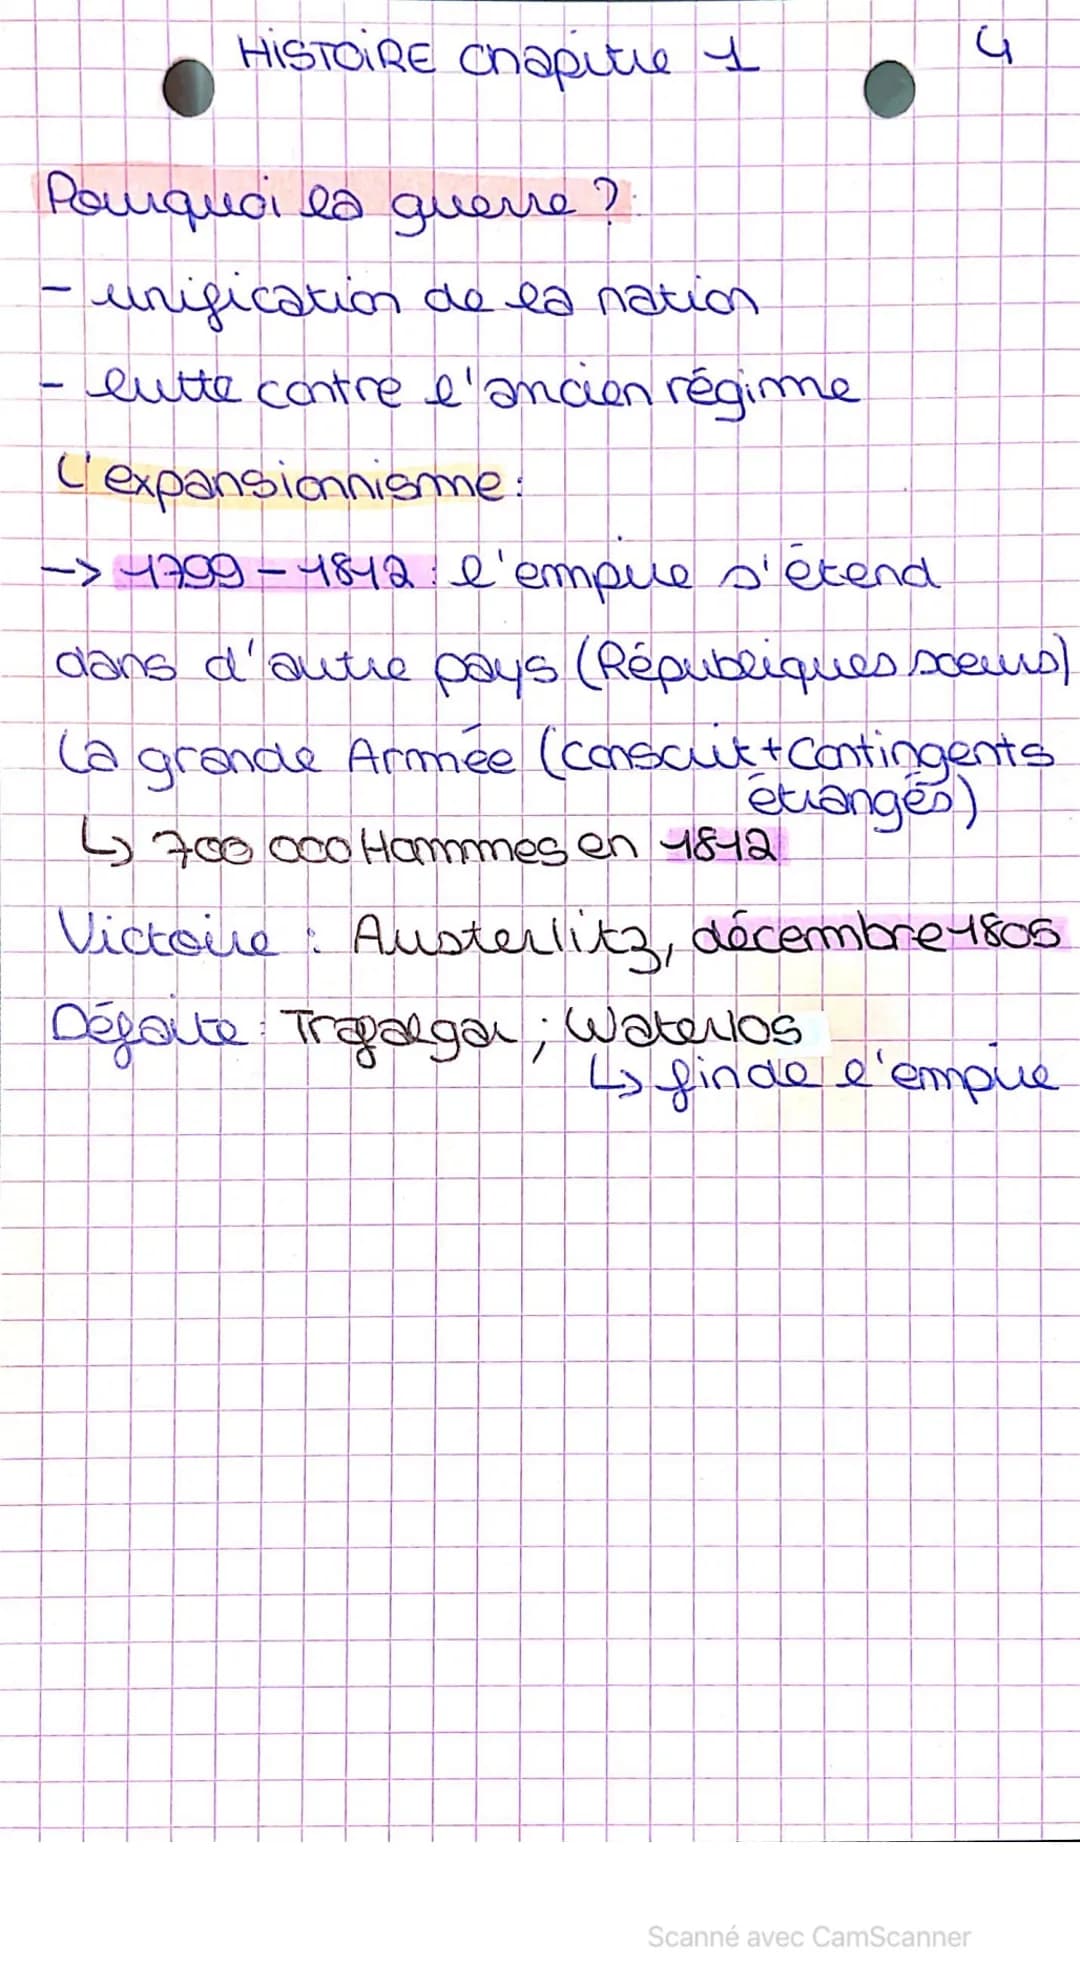 HISTOIRE Chapitre 1 4
Pourquoi la guerre ?
- unification de la nation
- lutte contre l'ancien régime
L'expansionnisme :
-> 1799 - 1812 : l'empire s'étend
dans d'autre pays (Républiques soeurs)
La grande Armée (conscrit + Contingents
étrangés)
↳ 700 000 Hommmes en 1812
Victoire : Austerlitz, décembre 1805
Défaite : Trafalgar ; Waterlos
↳ fin de l'empire
Scanné avec CamScanner